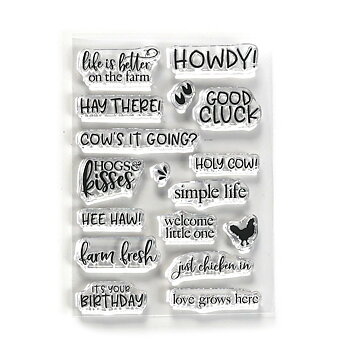 life is better
on the farm
HOWDY!
HAY THERE!
GOOD
CLUCK
COW'S IT GOING?
HOGS&
kisses
HOLY COW!
simple life
HEE HAW!
welcome
little one
farm fresh
just chicken in
IT'S YOUR
BIRTHDAY!
love grows here